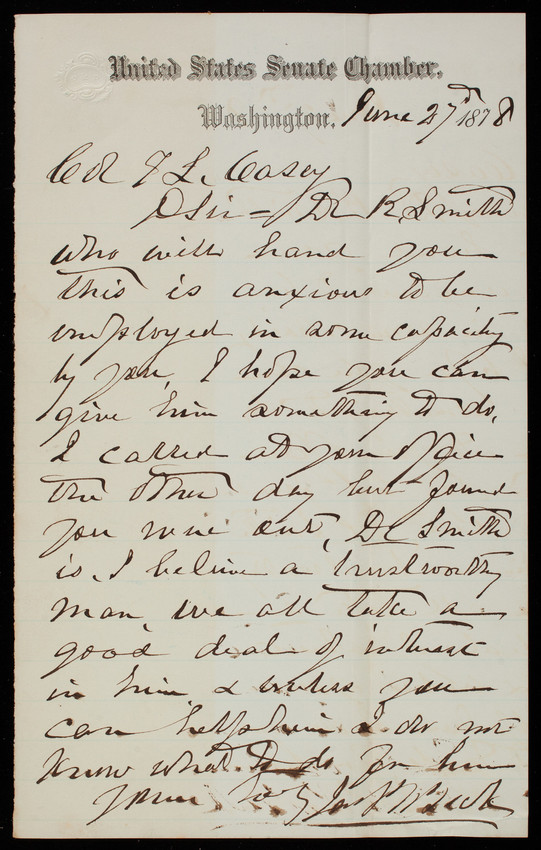 United States Senate Chamber,
Washington, June 27th 1878
Col T L. Casey
D Sir = Dr R Smith
who will hand you
this is anxious to be
employed in some capacity
by you, I hope you can
give him something to do,
I called at your office
the other day but found
you were out, Dr Smith
is, I believe a trustworthy
man, we all take a
good deal of interest
in him & unless you
can help him I do not
know what to do for him
Yours Truly Jas B Beck